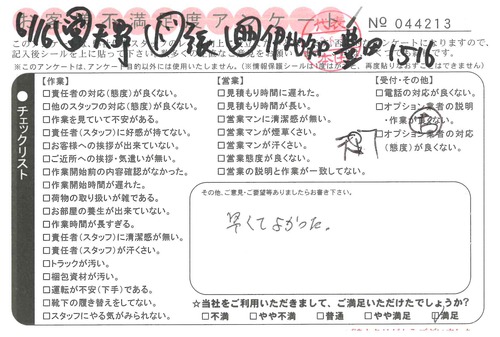 お客様不満足度アンケート
№ 044213
※このアンケートは、アンケート目的以外には使用いたしません。
チェックリスト
【作業】
□責任者の対応(態度)が良くない。
□他のスタッフの対応(態度)が良くない。
□作業を見ていて不安がある。
□責任者(スタッフ)に好感が持てない。
□お客様への挨拶が出来ていない。
□ご近所への挨拶・気遣いが無い。
□作業開始前の内容確認がなかった。
□作業開始時間が遅れた。
□荷物の取り扱いが雑である。
□お部屋の養生が出来ていない。
□作業時間が長すぎる。
□責任者(スタッフ)に清潔感が無い。
□責任者(スタッフ)が汗くさい。
□トラックが汚い。
□梱包資材が汚い。
□運転が不安(下手)である。
□靴下の履き替えをしてない。
□スタッフにやる気がみられない。
【営業】
□見積もり時間に遅れた。
□見積もり時間が長い。
□営業マンに清潔感が無い。
□営業マンが煙草くさい。
□営業マンが汗くさい。
□営業態度が良くない。
□営業の説明と作業が一致してない。
【受付・その他】
□電話の対応が良くない。
□オプション業者の説明
・作業が良くない。
□オプション業者の対応
(態度)が良くない。
その他、ご意見・ご要望等ありましたらお書き下さい。
早くてよかった。
☆当社をご利用いただきまして、ご満足いただけたでしょうか?
□不満 □やや不満 □普通 □やや満足 ☑満足